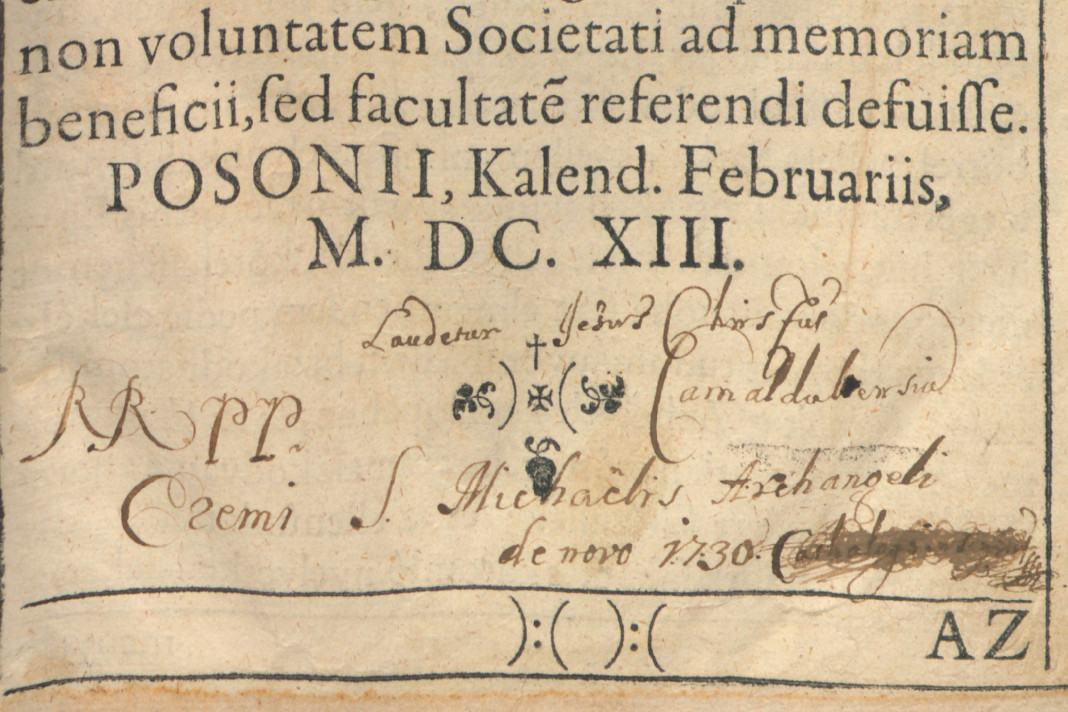 non voluntatem Societati ad memoriam
beneficii, ſed facultatē referendi defuiſſe.
POSONII, Kalend. Februariis,
M. DC. XIII.
Laudetur Jesus Christus
RR. PP. Camaldulensiũ
Eremi S. Michaëlis Archangeli
de novo 1730.
):( ):(
AZ